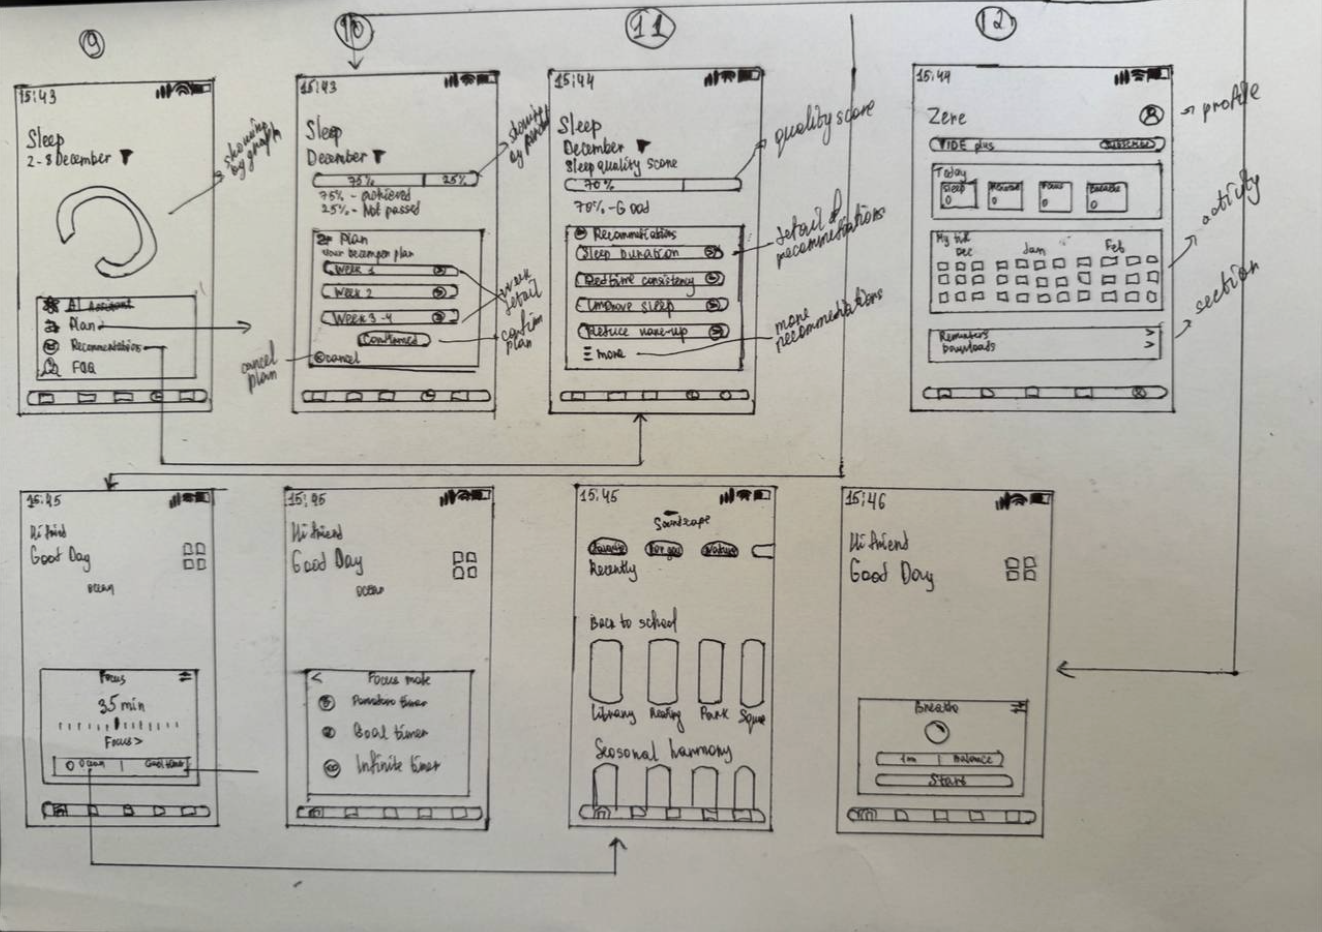 9
15:43
Sleep
2-8 December
showing by graph
AI Assistant
Plan
Recommendations
FAQ
10
15:43
Sleep
December
75% 25%
75% - achieved
25% - Not passed
Plan
Your December plan
Week 1
Week 2
Week 3-4
Confirmed
cancel
week detail
confirm plan
cancel plan
11
15:44
Sleep
December
Sleep quality score
70%
70% - Good
Sleep Duration
Bedtime consistency
Improve sleep
Reduce wake-up
more
quality score
more
12
15:44
Zene
TIDE plus
Today
Sleep
0
0
Focus
0
Breathe
0
Dec Jan Feb
Reminders
Downloads
profile
activity
section
15:45
Hi friend
Good Day
ocean
Focus
35 min
Focus >
Ocean | Goal timer
15:45
Hi friend
Good Day
ocean
< Focus mode
Pomodoro timer
Goal timer
Infinite timer
15:45
Soundscape
Favorite For you Nature
Recently
Back to school
Library Reading Park
Seasonal harmony
15:46
Hi friend
Good Day
Breathe
1m | Balance
Start